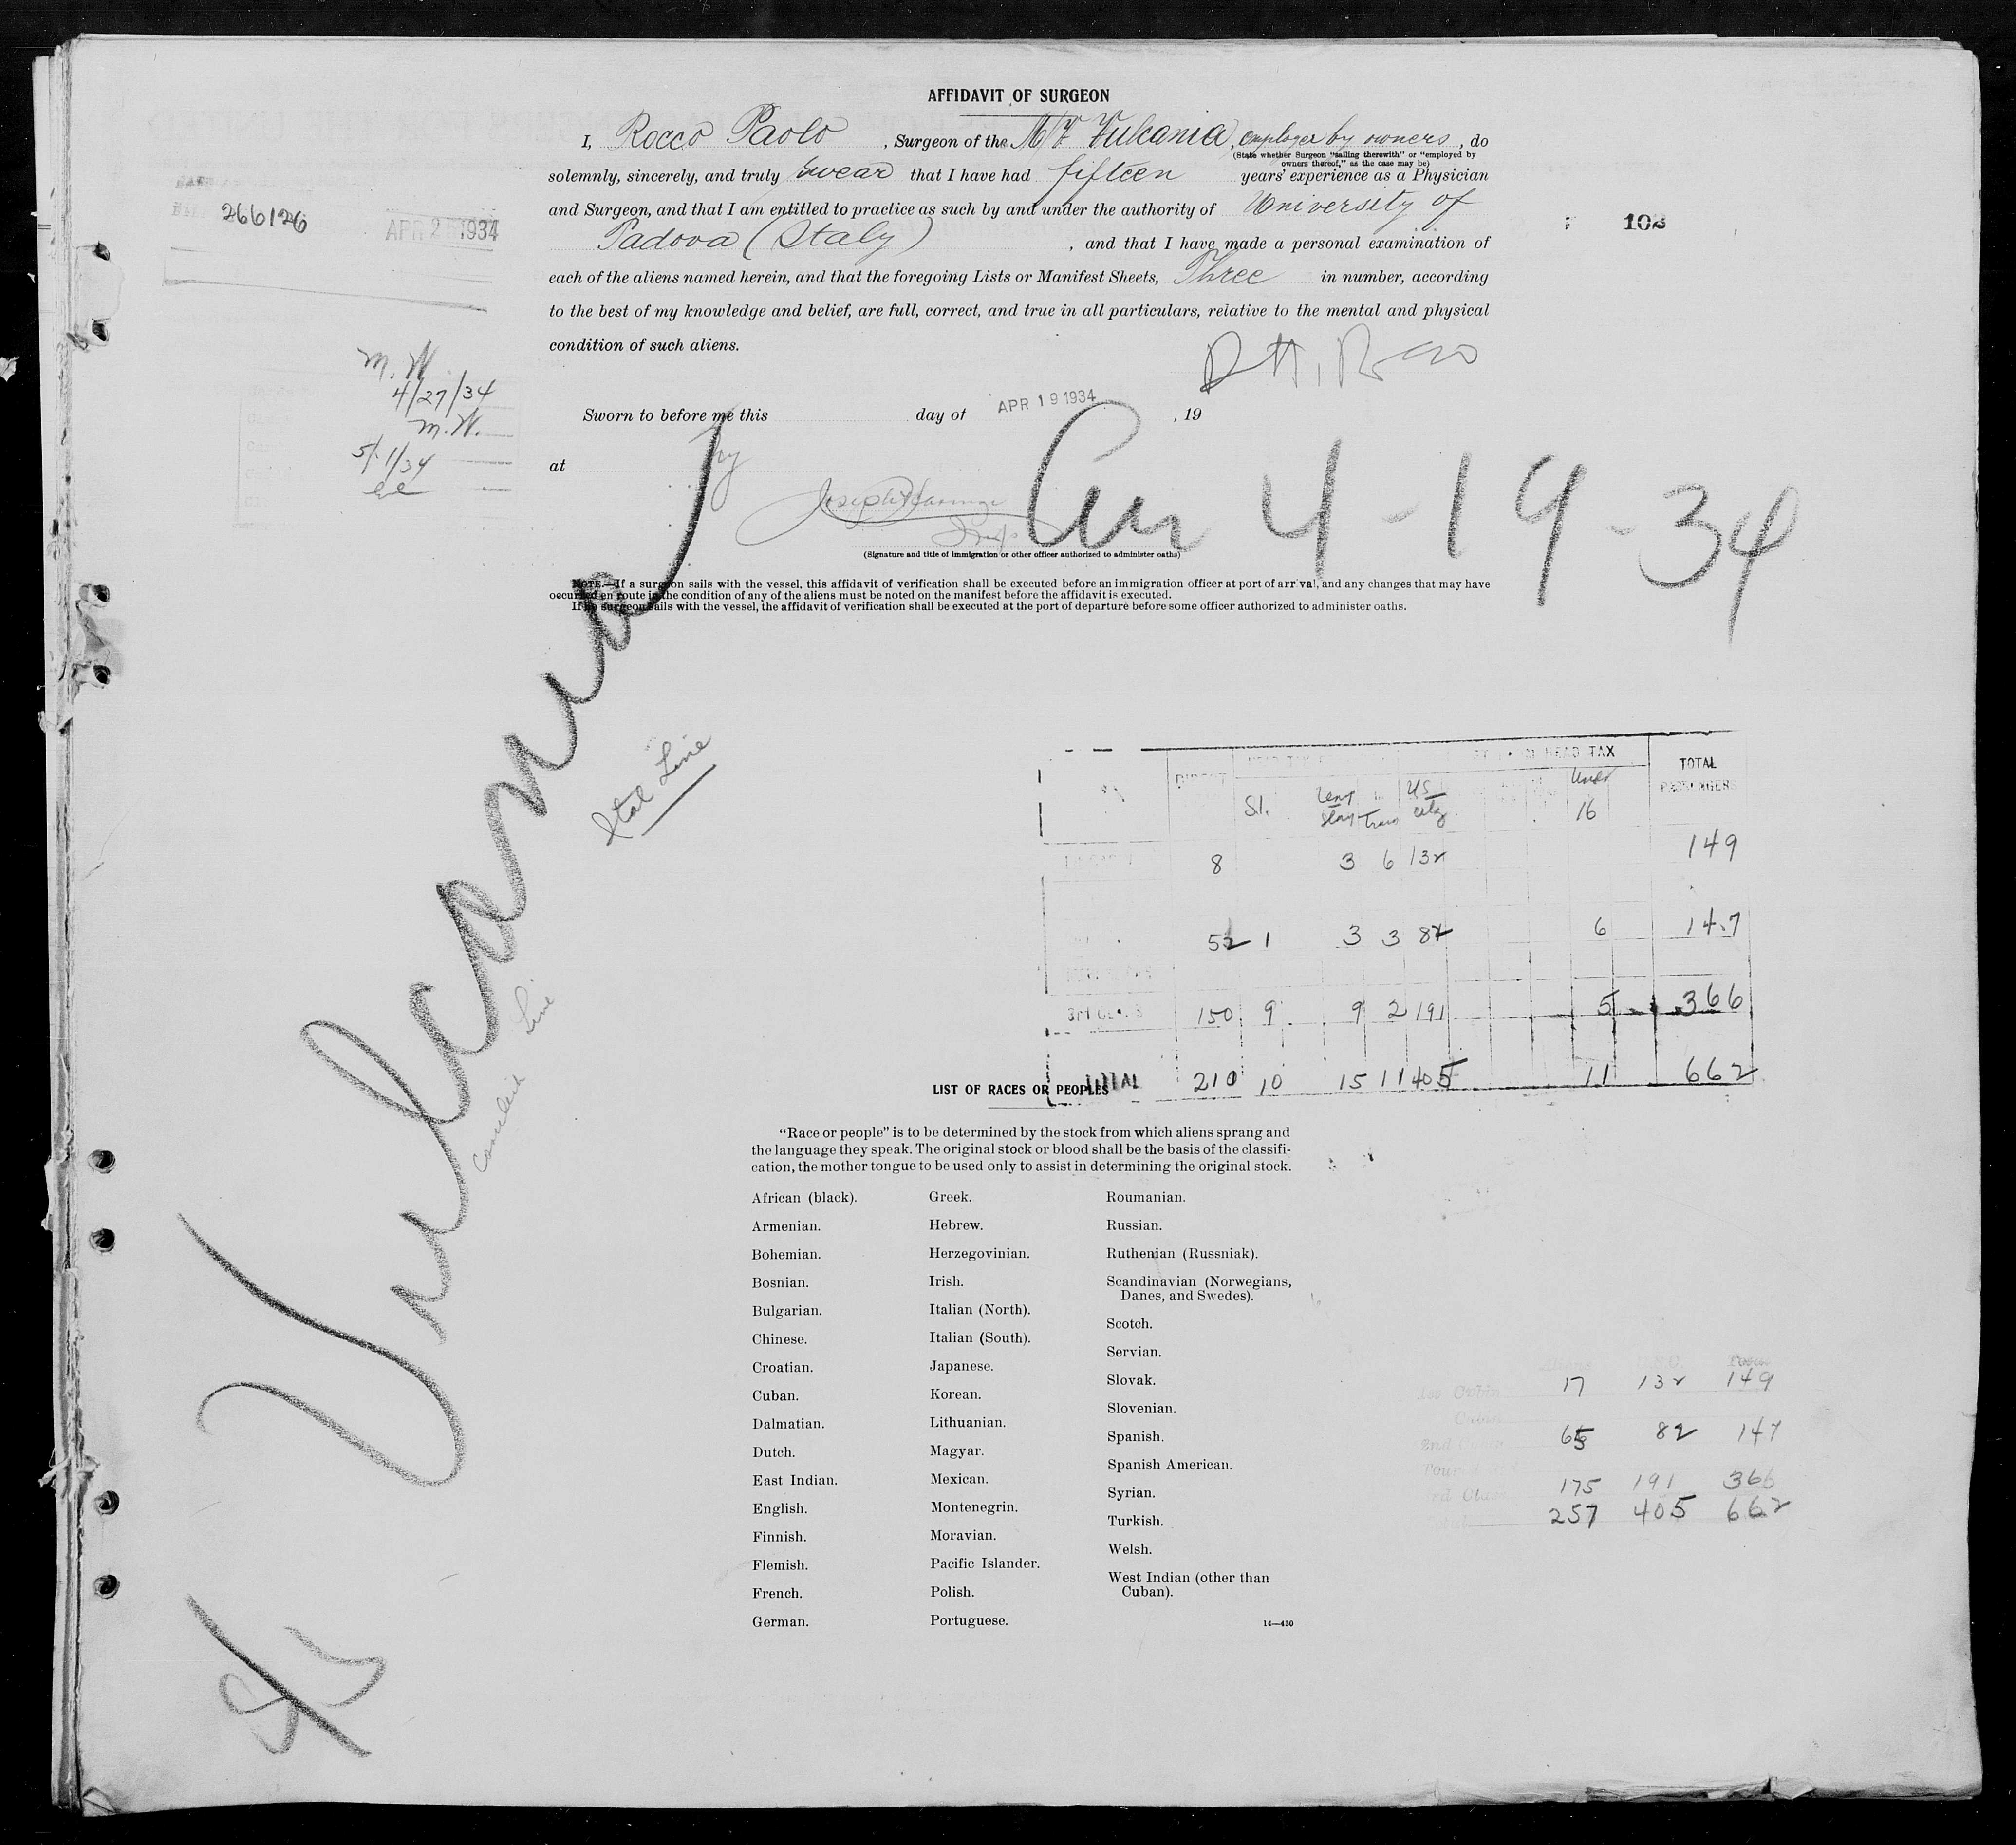 AFFIDAVIT OF SURGEON
I, Rocco Paolo, Surgeon of the M/V Vulcania, employer by owners, do
(State whether Surgeon "sailing therewith" or "employed by
owners thereof," as the case may be)
solemnly, sincerely, and truly swear that I have had fifteen years' experience as a Physician
and Surgeon, and that I am entitled to practice as such by and under the authority of University of
Padova (Italy), and that I have made a personal examination of
each of the aliens named herein, and that the foregoing Lists or Manifest Sheets, Three in number, according
to the best of my knowledge and belief, are full, correct, and true in all particulars, relative to the mental and physical
condition of such aliens.
266126
APR 2 1934
102
M. W.
4/27/34
M. W.
5/1/34
Sworn to before me this day of APR 19 1934, 19
at ny
4-19-34
(Signature and title of immigration or other officer authorized to administer oaths)
NOTE.—If a surgeon sails with the vessel, this affidavit of verification shall be executed before an immigration officer at port of arrival, and any changes that may have
occurred en route in the condition of any of the aliens must be noted on the manifest before the affidavit is executed.
If no surgeon sails with the vessel, the affidavit of verification shall be executed at the port of departure before some officer authorized to administer oaths.
Vulcania
Ital Line
Line
HEAD TAX
TOTAL
PASSENGERS
DIRECT
S.I.
US
Under
16
8 3 6 132 149
52 1 3 3 82 6 147
3rd CLASS 150 9 9 2 191 5 366
TOTAL 210 10 15 11 405 11 662
LIST OF RACES OR PEOPLES
"Race or people" is to be determined by the stock from which aliens sprang and
the language they speak. The original stock or blood shall be the basis of the classifi-
cation, the mother tongue to be used only to assist in determining the original stock.
African (black).
Armenian.
Bohemian.
Bosnian.
Bulgarian.
Chinese.
Croatian.
Cuban.
Dalmatian.
Dutch.
East Indian.
English.
Finnish.
Flemish.
French.
German.
Greek.
Hebrew.
Herzegovinian.
Irish.
Italian (North).
Italian (South).
Japanese.
Korean.
Lithuanian.
Magyar.
Mexican.
Montenegrin.
Moravian.
Pacific Islander.
Polish.
Portuguese.
Roumanian.
Russian.
Ruthenian (Russniak).
Scandinavian (Norwegians,
Danes, and Swedes).
Scotch.
Servian.
Slovak.
Slovenian.
Spanish.
Spanish American.
Syrian.
Turkish.
Welsh.
West Indian (other than
Cuban).
14—430
17 132 149
65 82 147
175 191 366
257 405 662